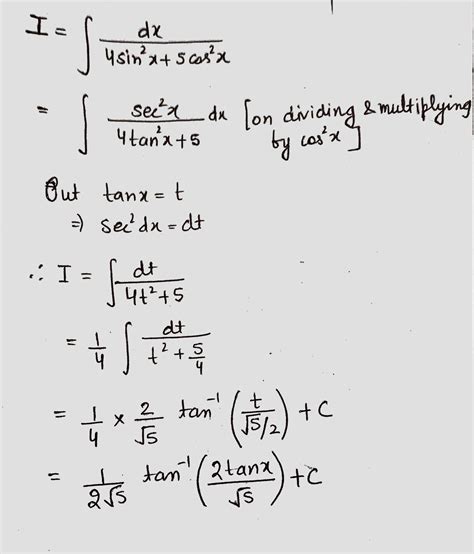 I = ∫ dx / (4sin²x + 5cos²x)
= ∫ sec²x / (4tan²x + 5) dx [on dividing & multiplying
by cos²x]
Put tanx = t
⇒ sec²dx = dt
∴ I = ∫ dt / (4t² + 5)
= 1/4 ∫ dt / (t² + 5/4)
= 1/4 × 2/√5 tan⁻¹ (t / (√5/2)) + C
= 1/(2√5) tan⁻¹ (2tanx / √5) + C